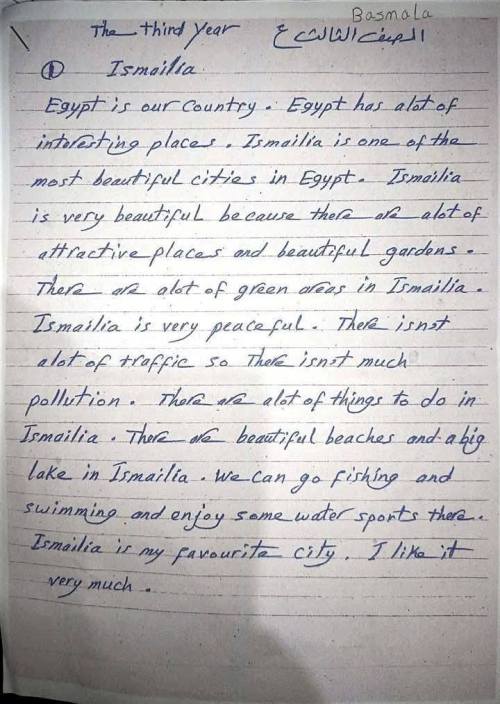 Basmala
The third Year الصف الثالث ع
① Ismailia
Egypt is our country. Egypt has alot of
interesting places. Ismailia is one of the
most beautiful cities in Egypt. Ismailia
is very beautiful because there are alot of
attractive places and beautiful gardens.
There are alot of green areas in Ismailia.
Ismailia is very peaceful. There isnot
alot of traffic so There isnot much
pollution. There are alot of things to do in
Ismailia. There are beautiful beaches and a big
lake in Ismailia. We can go fishing and
swimming and enjoy some water sports there.
Ismailia is my favourite city. I like it
very much.